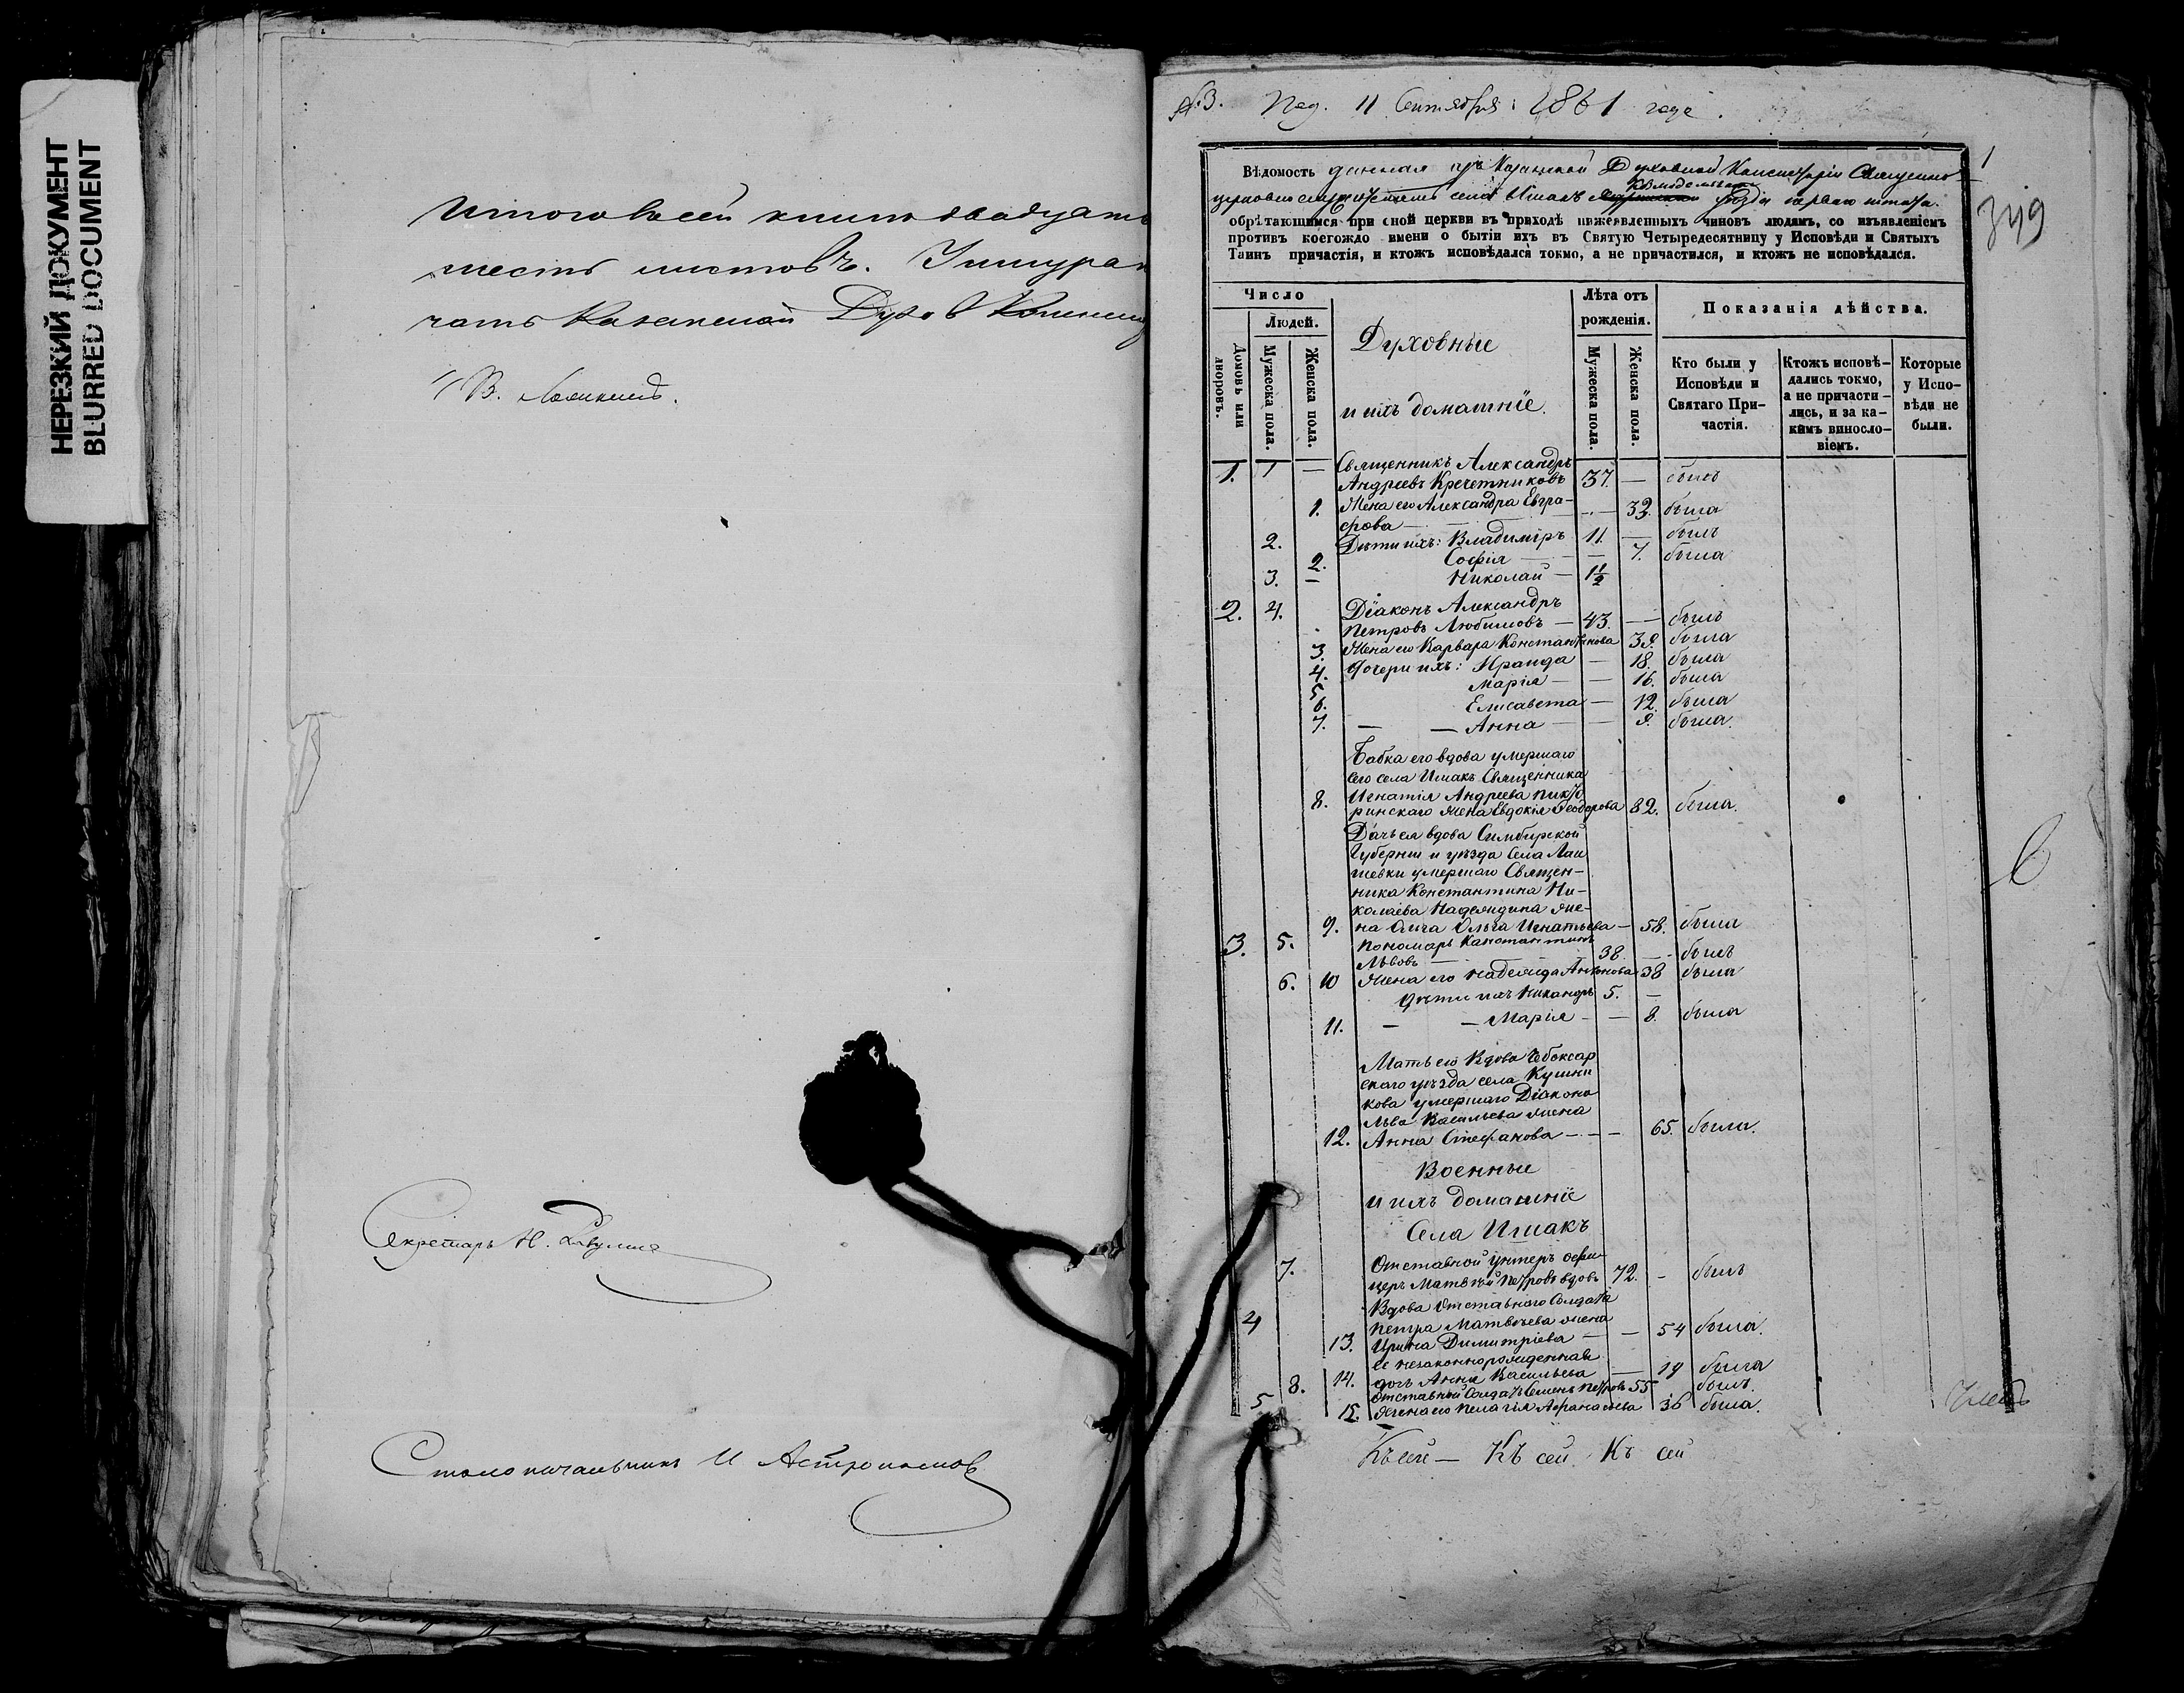 НЕРЕЗКИЙ ДОКУМЕНТ
BLURRED DOCUMENT
Итого всей книги двадцать
шесть листовъ.
Казанской Духов Консист
Секретарь Н.
Столоначальникъ И
№3. Под. 11 Сентября 1861 года.
1
349
Вѣдомость данная изъ Казанской Духовной Консисторіи Священно
церковнослужителямъ села Ишакъ Козмодемьян уѣзда перваго штата.
обрѣтающимся при сной церкви въ приходѣ нижеявленныхъ чиновъ людямъ, со изъявленіемъ
противъ коегождо имени о бытіи ихъ въ Святую Четыредесятницу у Исповѣди и Святыхъ
Таинъ причастія, и ктожъ исповѣдался токмо, а не причастился, и ктожъ не исповѣдался.
Число
Людей.
Домовъ или дворовъ.
Мужеска пола.
Женска пола.
Духовные
и ихъ домашніе.
Лѣта отъ рожденія.
Мужеска пола.
Женска пола.
Показанія дѣйства.
Кто были у Исповѣди и Святаго При-частія.
Ктожъ исповѣ-дались токмо, а не причасти-лись, и за ка-кимъ винослο-віемъ.
Которые у Испо-вѣди не были.
1. 1 — Священникъ Александръ
Андреевъ Кречетниковъ 37. — былъ
1. Жена его Александра Евгра-
фова — 32. была
2. Дѣти ихъ: Владиміръ 11. — былъ
2. Софія — 7. была
3. — Николай — 1½
2. 4. Діаконъ Александръ
Петровъ Любимовъ — 43. — былъ
3. Жена его Варвара Константинова 39. была
4. Дочери ихъ: Ираида — 18. была
5. Марія — — 16. была
6. Елисавета — 12. была
7. — — Анна — — 9. была.
Бабка его вдова умершаго
сего села Ишакъ Священника
Игнатія Андреева
8. ринскаго жена Евдокія Феодорова 82. была.
Дочь ея вдова Симбирской
Губерніи и уѣзда села Лаи
шевки умершаго Священ-
ника Константина Ни-
колаева Надеждина же-
9. на Ольга Игнатьева — 58. была
3. 5. Пономарь Константинъ
Львовъ — 38. — былъ
6. 10 Жена его Надежда Антонова 38 была
Дѣти ихъ Никандръ 5. —
11. — — Марія — — 8. была
Мать его Вдова Чебоксар
скаго уѣзда села Кушни
кова умершаго Діакона
Льва Васильева жена
12. Анна Стефанова — — — 65. была.
Военные
и ихъ домашніе
Села Ишакъ
7. Отставной унтеръ офи
церъ Матвѣй Петровъ вдовъ 72. — былъ
4 Вдова отставнаго Солдата
Петра Матвѣева жена
13. Ирина Димитріева — — 54 была.
Ее незаконнорожденная
14. дочь Анна Васильева — 19 была
8. Отставной Солдатъ Семенъ Петровъ 55 былъ.
5 15. Жена его Пелагія Афанасьева 36 была.
Къ сей — Къ сей Къ сей